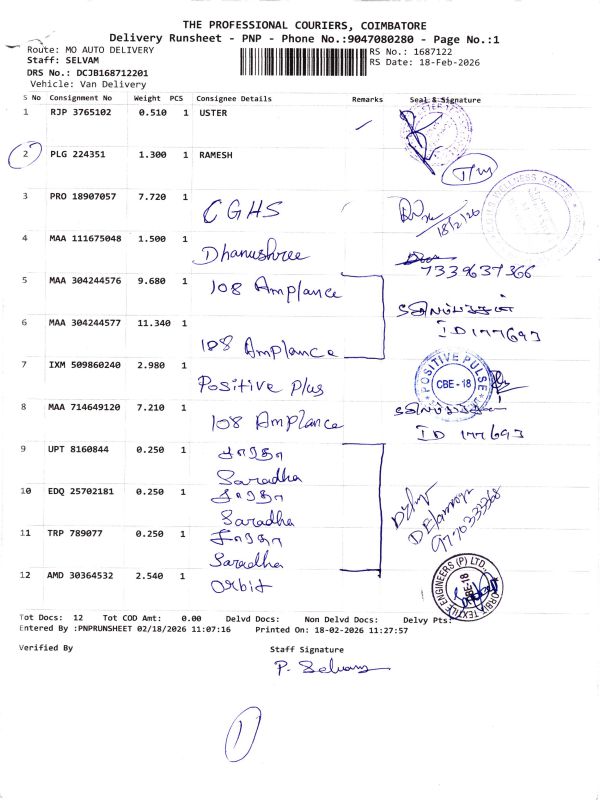 THE PROFESSIONAL COURIERS, COIMBATORE
Delivery Runsheet - PNP - Phone No.:9047080280 - Page No.:1
Route: MO AUTO DELIVERY RS No.: 1687122
Staff: SELVAM RS Date: 18-Feb-2026
DRS No.: DCJB168712201
Vehicle: Van Delivery
S No Consignment No Weight PCS Consignee Details Remarks Seal & Signature
1 RJP 3765102 0.510 1 USTER
2 PLG 224351 1.300 1 RAMESH
3 PRO 18907057 7.720 1 CGHS 18/2/26
4 MAA 111675048 1.500 1 Dhanushree 7339637366
5 MAA 304244576 9.680 1 108 Amplance
ID 177697
6 MAA 304244577 11.340 1 108 Amplance
7 IXM 509860240 2.980 1 Positive Plus POSITIVE PULSE CBE-18
8 MAA 714649120 7.210 1 108 Amplance
ID 177697
9 UPT 8160844 0.250 1 சாரதா
Saradha
10 EDQ 25702181 0.250 1 சாரதா
Saradha
11 TRP 789077 0.250 1 சாரதா
Saradha
12 AMD 30364532 2.540 1 Orbit ORBIT TEXTILE ENGINEERS (P) LTD., CBE-18
Tot Docs: 12 Tot COD Amt: 0.00 Delvd Docs: Non Delvd Docs: Delvy Pts:
Entered By :PNPRUNSHEET 02/18/2026 11:07:16 Printed On: 18-02-2026 11:27:57
Verified By Staff Signature
P. Selvam
1